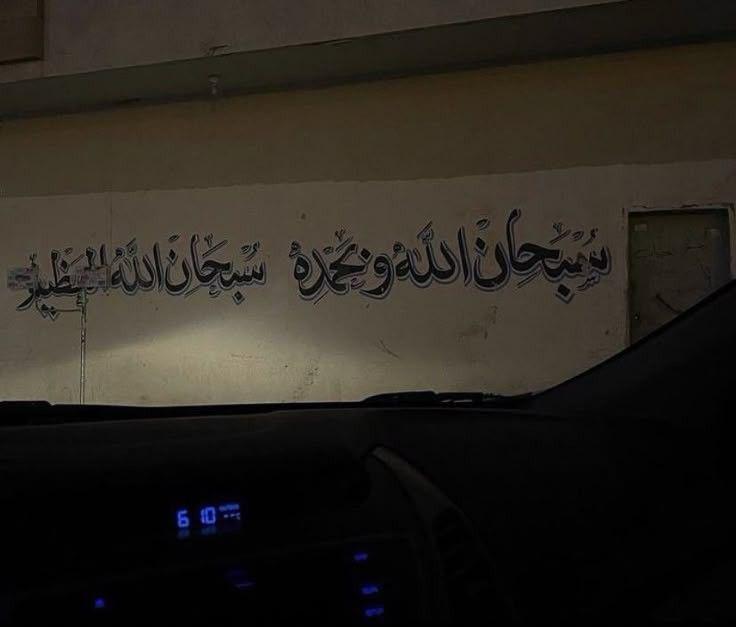 سُبْحَانَ اللّٰهِ وَبِحَمْدِهِ سُبْحَانَ اللّٰهِ العَظِيْم
6 10